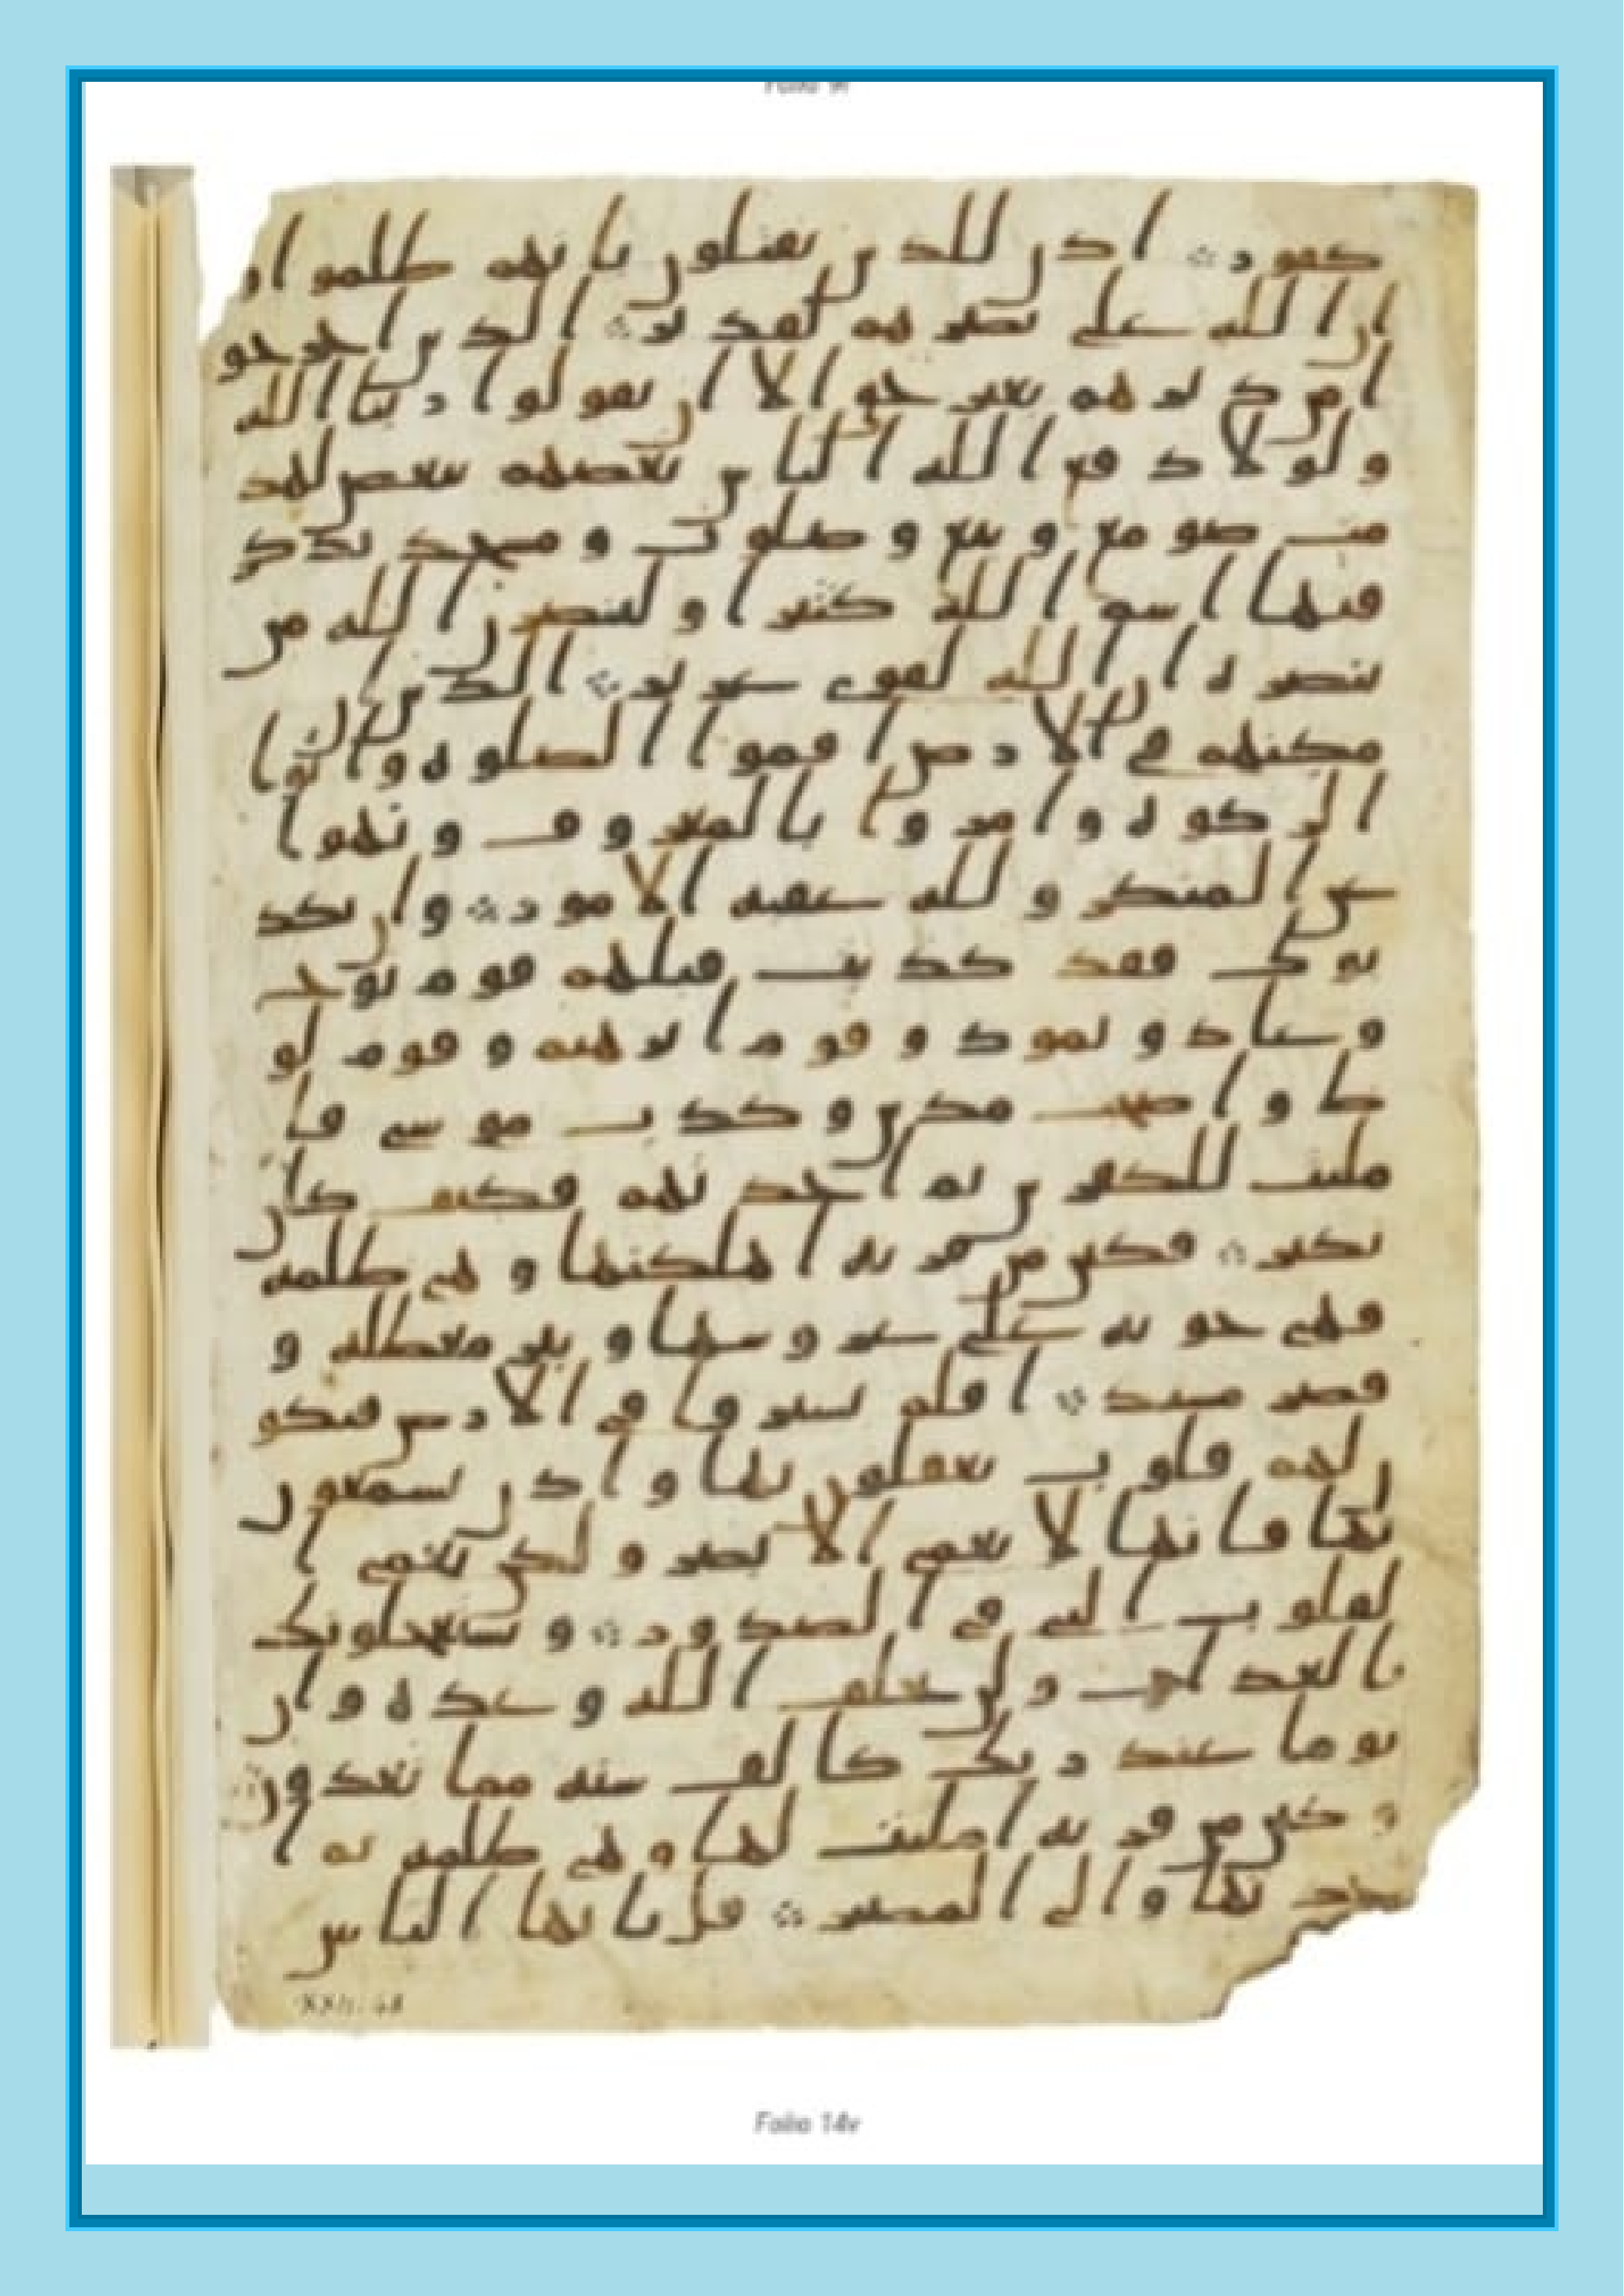 Folio 9r
كفور ؞ اذن للذين يقتلون بانهم ظلموا و
ان الله على نصرهم لقدير ؞ الذين اخرجو
ا من ديرهم بغير حق الا ان يقولوا ربنا الله
ولولا دفع الله الناس بعضهم ببعض لهد
مت صومع وبيع وصلوت ومسجد يذكر
فيها اسم الله كثيرا ولينصرن الله من
ينصره ان الله لقوى عزيز ؞ الذين ان
مكنهم في الارض اقموا الصلوه واتوا
الزكوه وامروا بالمعروف ونهوا
عن المنكر ولله عقبه الامور ؞ وان يكذ
بوك فقد كذبت قبلهم قوم نوح
وعاد وثمود وقوم ابرهيم وقوم لو
ط واصحب مدين وكذب موسى فا
مليت للكفرين ثم اخذتهم فكيف كان
نكير ؞ فكين من قريه اهلكنها وهي ظلمه
فهي خويه على عروشها وبير معطله و
قصر مشيد ؞ افلم يسيروا في الارض فتكو
ن لهم قلوب يعقلون بها واذن يسمعون
بها فانها لا تعمى الابصر ولكن تعمى ا
لقلوب التي في الصدور ؞ ويستعجلونك
بالعذاب ولن يخلف الله وعده وان
يوما عند ربك كالف سنه مما تعدون
وكين من قريه امليت لها وهي ظلمه ثم ا
خذتها والي المصير ؞ قل يايها الناس
XXII. 48
Folio 14v